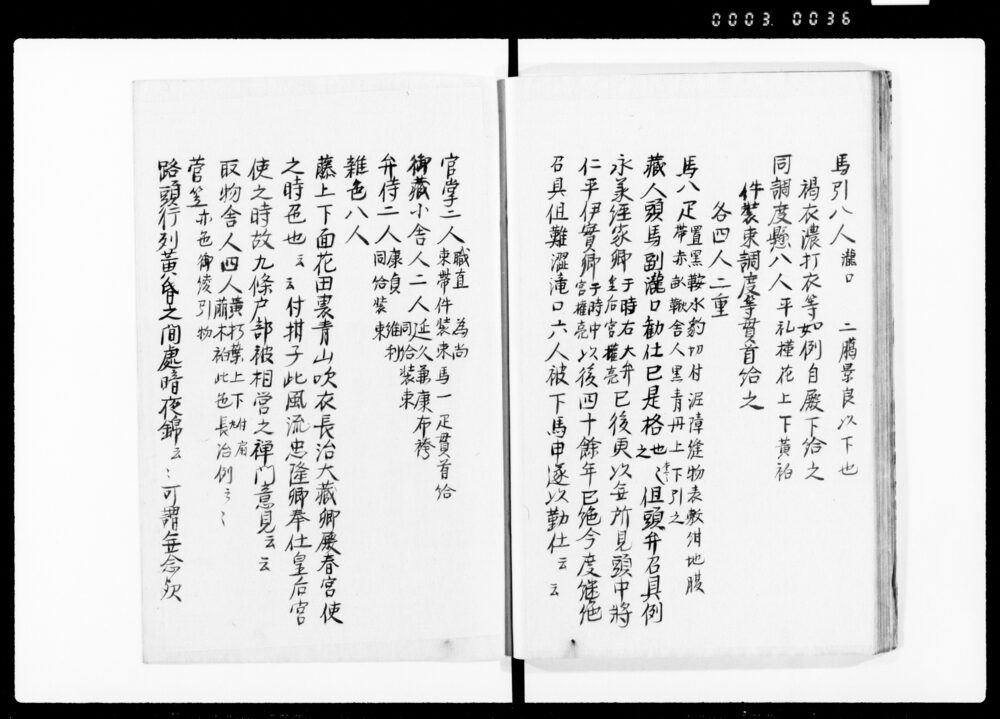 0003.0036
馬引八人 瀧口 二臈景良以下也
褐衣濃打衣等如例自殿下給之
同調度懸八人 平礼槿花上下黄衵
件裝束調度等貫首給之
各四人二重
馬八疋 置黒鞍水豹切付泥障縫物表敷紺地
帯赤 鞦舎人黒青丹上下引之
藏人頭馬副瀧口勤仕已是格也云々但頭弁召具例
永 経家卿 于時右大弁皇后宮権亮 已後更以無所見頭中将
仁平伊實卿 于時中宮権亮 以後四十餘年已絶今度継絶
召具但難澁滝口六人被下馬申逐以勤仕云云
官掌二人 職直 為尚
束帯件装束馬一疋貫首給
御藏小舎人二人 延久兼康布袴
同給裝束
弁侍二人 康貞 維利
同給装束
雜色八人
藤上下面花田裏青山吹衣長治大藏卿 春宮使
之時色也云々付柑子此風流忠隆卿奉仕皇后宮
使之時故九條戸部被相営之禅門意見云云
取物舎人四人 黄朽葉上下 付扇
萠木衵此色長治例云々
菅笠 赤色御綾引物
路頭行列黄昏之間處暗夜錦云々可謂無念歟